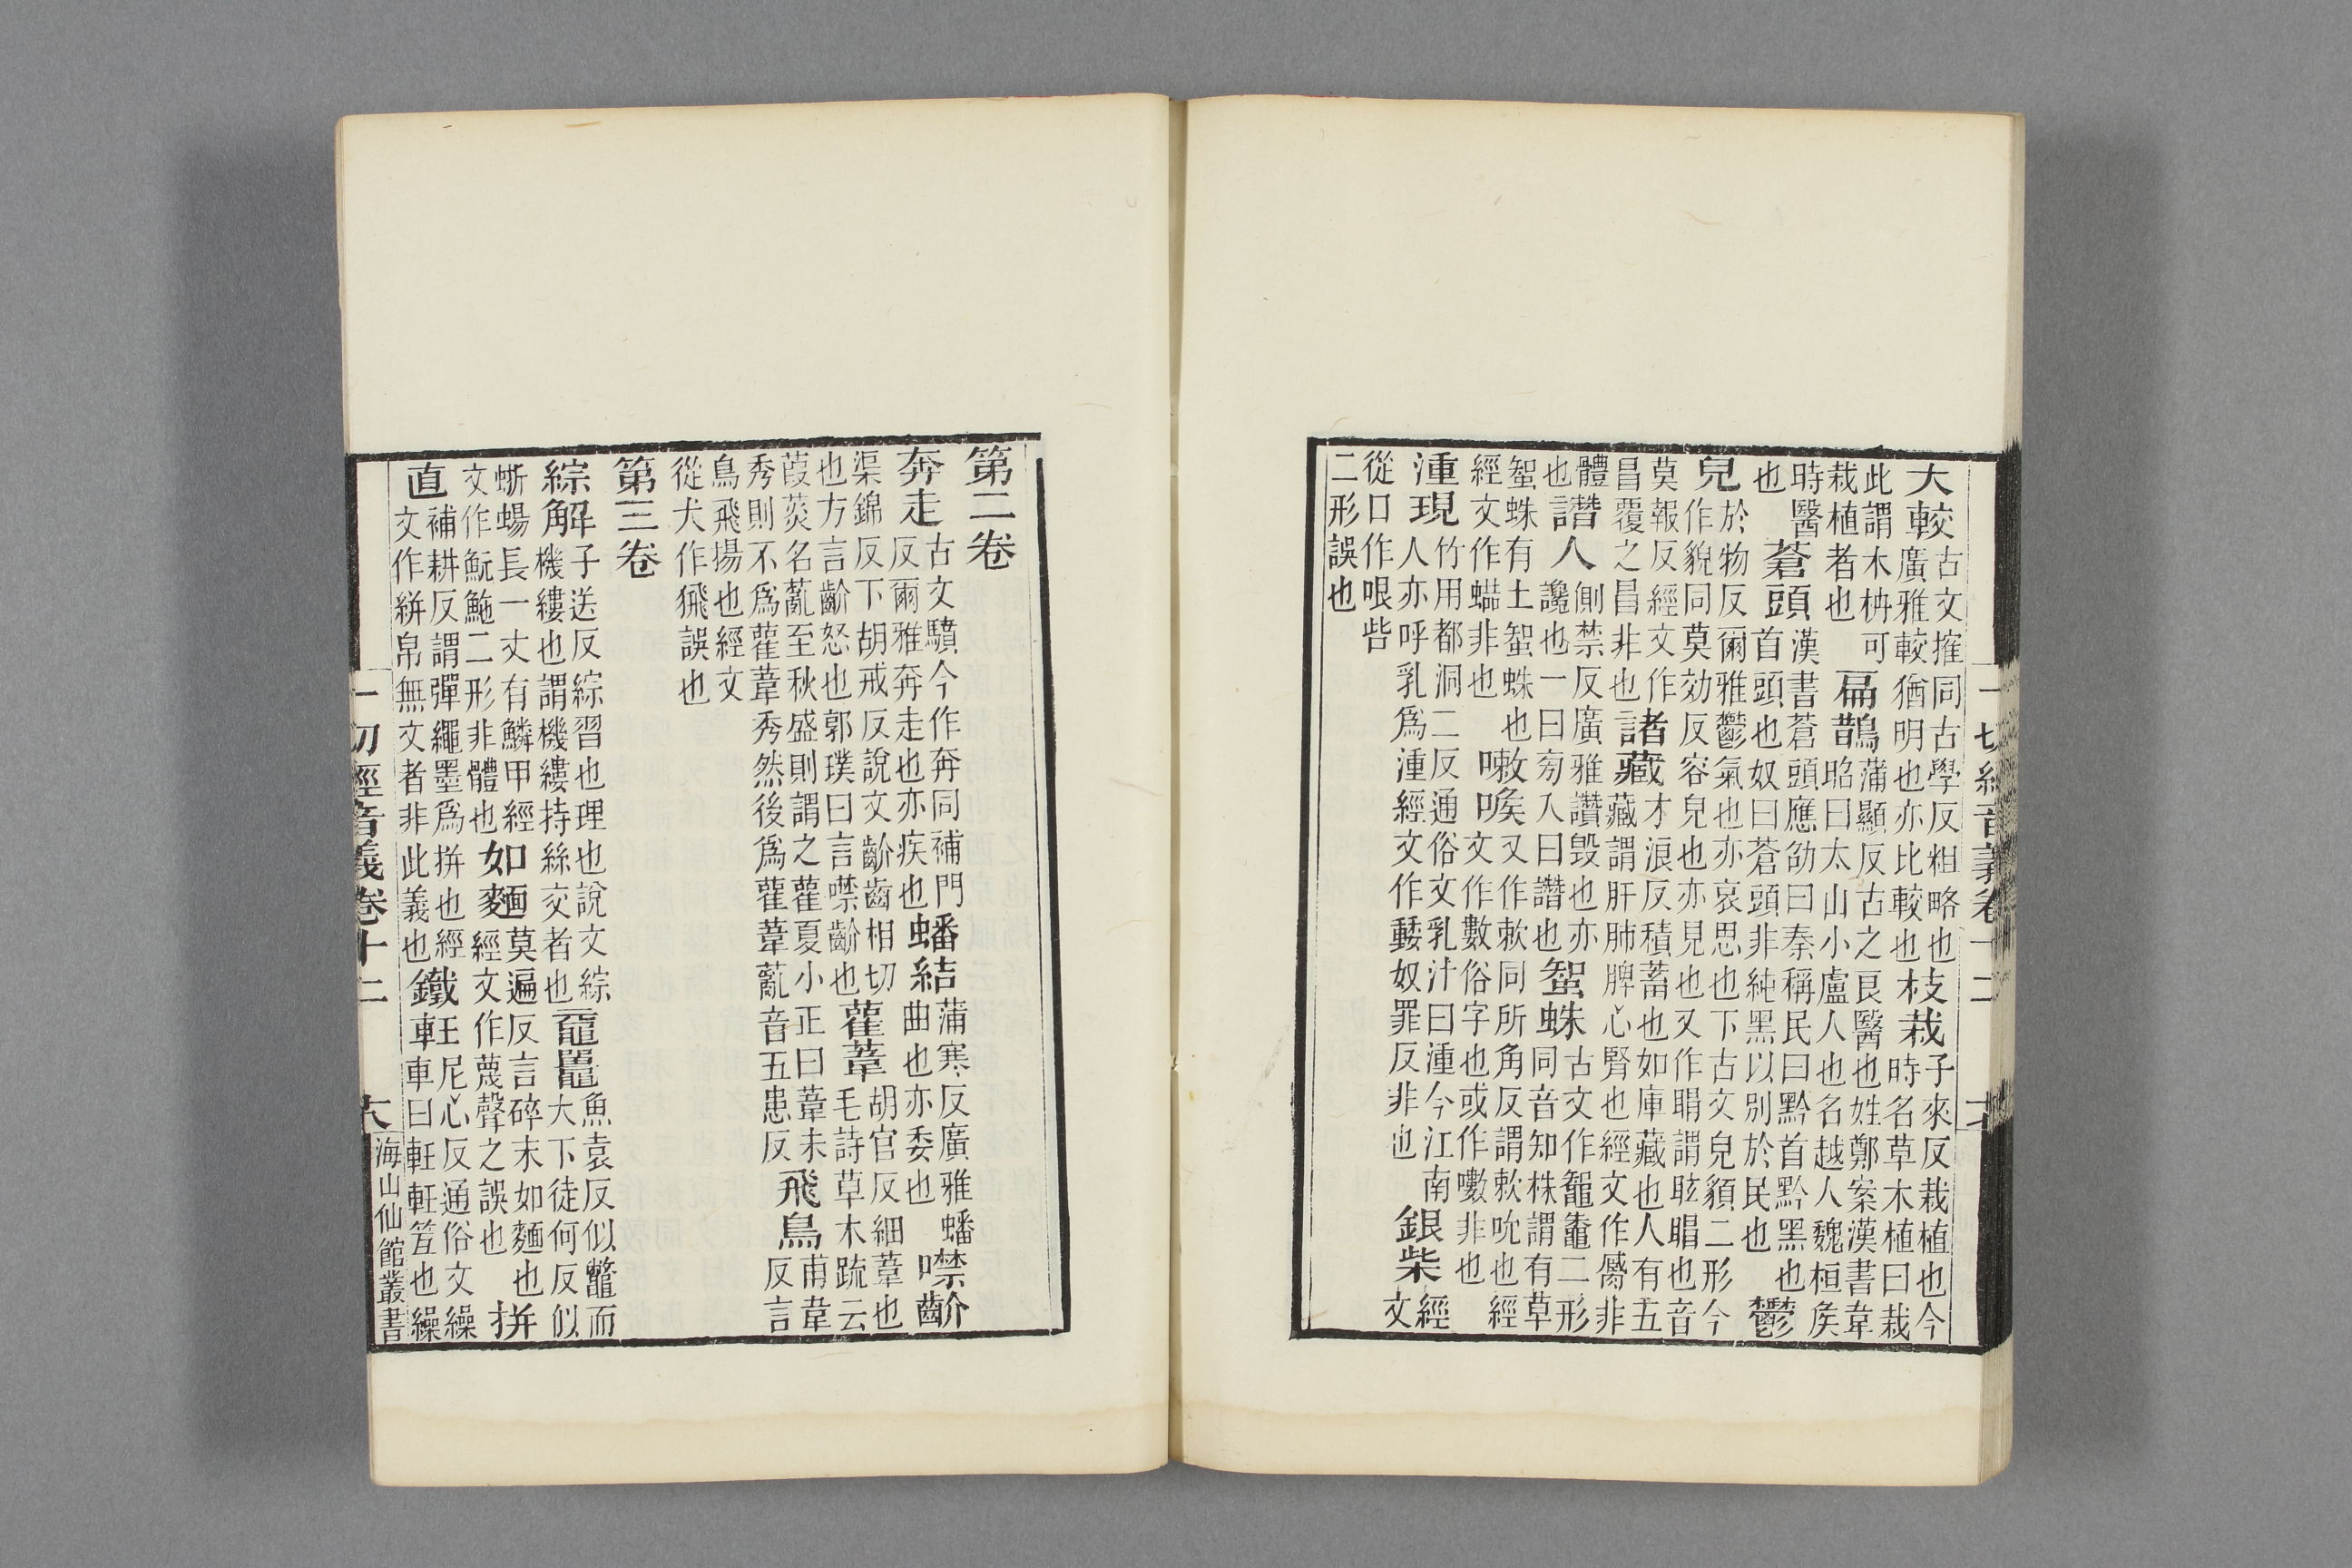 一切經音義卷十二
大較古文搉同古學反粗略也廣雅較猶明也亦比較也枝栽子來反栽植也今時名草木植曰栽
此謂木栴可栽植者也扁鵲蒲顯反古之良醫也姓鄭案漢書韋昭曰太山小盧人也名越人魏桓矦
時醫也蒼頭漢書蒼頭應劭曰秦稱民曰黔首黔黑也首頭也奴曰蒼頭非純黑以別於民也鬱
皃於物反爾雅鬱氣也亦哀思也下古文皃䫉二形今作貌同莫効反容皃也亦見也又作䀏謂眩䀏也音
莫報反經文作冒覆之冒非也諸藏才浪反積蓄也如庫藏也人有五藏謂肝肺脾心腎也經文作非
體也譖人側禁反廣雅讚毁也亦讒也一曰旁入曰譖也蜘蛛古文作鼅鼄二形同音知株謂有草
蜘蛛有土蜘蛛也經文作非也嗽唉又作欶同所角反謂欶吮也經文作數俗字也或作嗷非也
湩現竹用都洞二反通俗文乳汁曰湩今江南人亦呼乳爲湩經文作奴罪反非也銀柴經文
從口作哏呰二形誤也
第二卷
奔走古文驞今作奔同補門反爾雅奔走也亦疾也蟠結蒲寒反廣雅蟠曲也亦委也噤齘
渠錦反下胡戒反說文齘齒相切也方言齘怒也郭璞曰言噤齘也雚葦胡官反細葦也毛詩草木疏云
葭菼名薍至秋盛則謂之雚夏小正曰葦未秀則不爲雚葦秀然後爲雚葦薍音五患反飛鳥甫韋反言
鳥飛揚也經文從犬作猆誤也
第三卷
綜解子送反綜習也理也說文綜機縷也謂機縷持絲交者也黿鼉魚袁反似鼈而大下徒何反似
蜥蜴長一丈有鱗甲經文作魭鮀二形非體也如麵莫遍反言碎末如麵也經文作蔑聲之誤也拼
直補耕反謂彈繩墨爲拼也經文作絣帛無文者非此義也鐵軖王尼心反通俗文繰車曰軖軖笡也繰
一切經音義卷十二 十六 海山仙館叢書